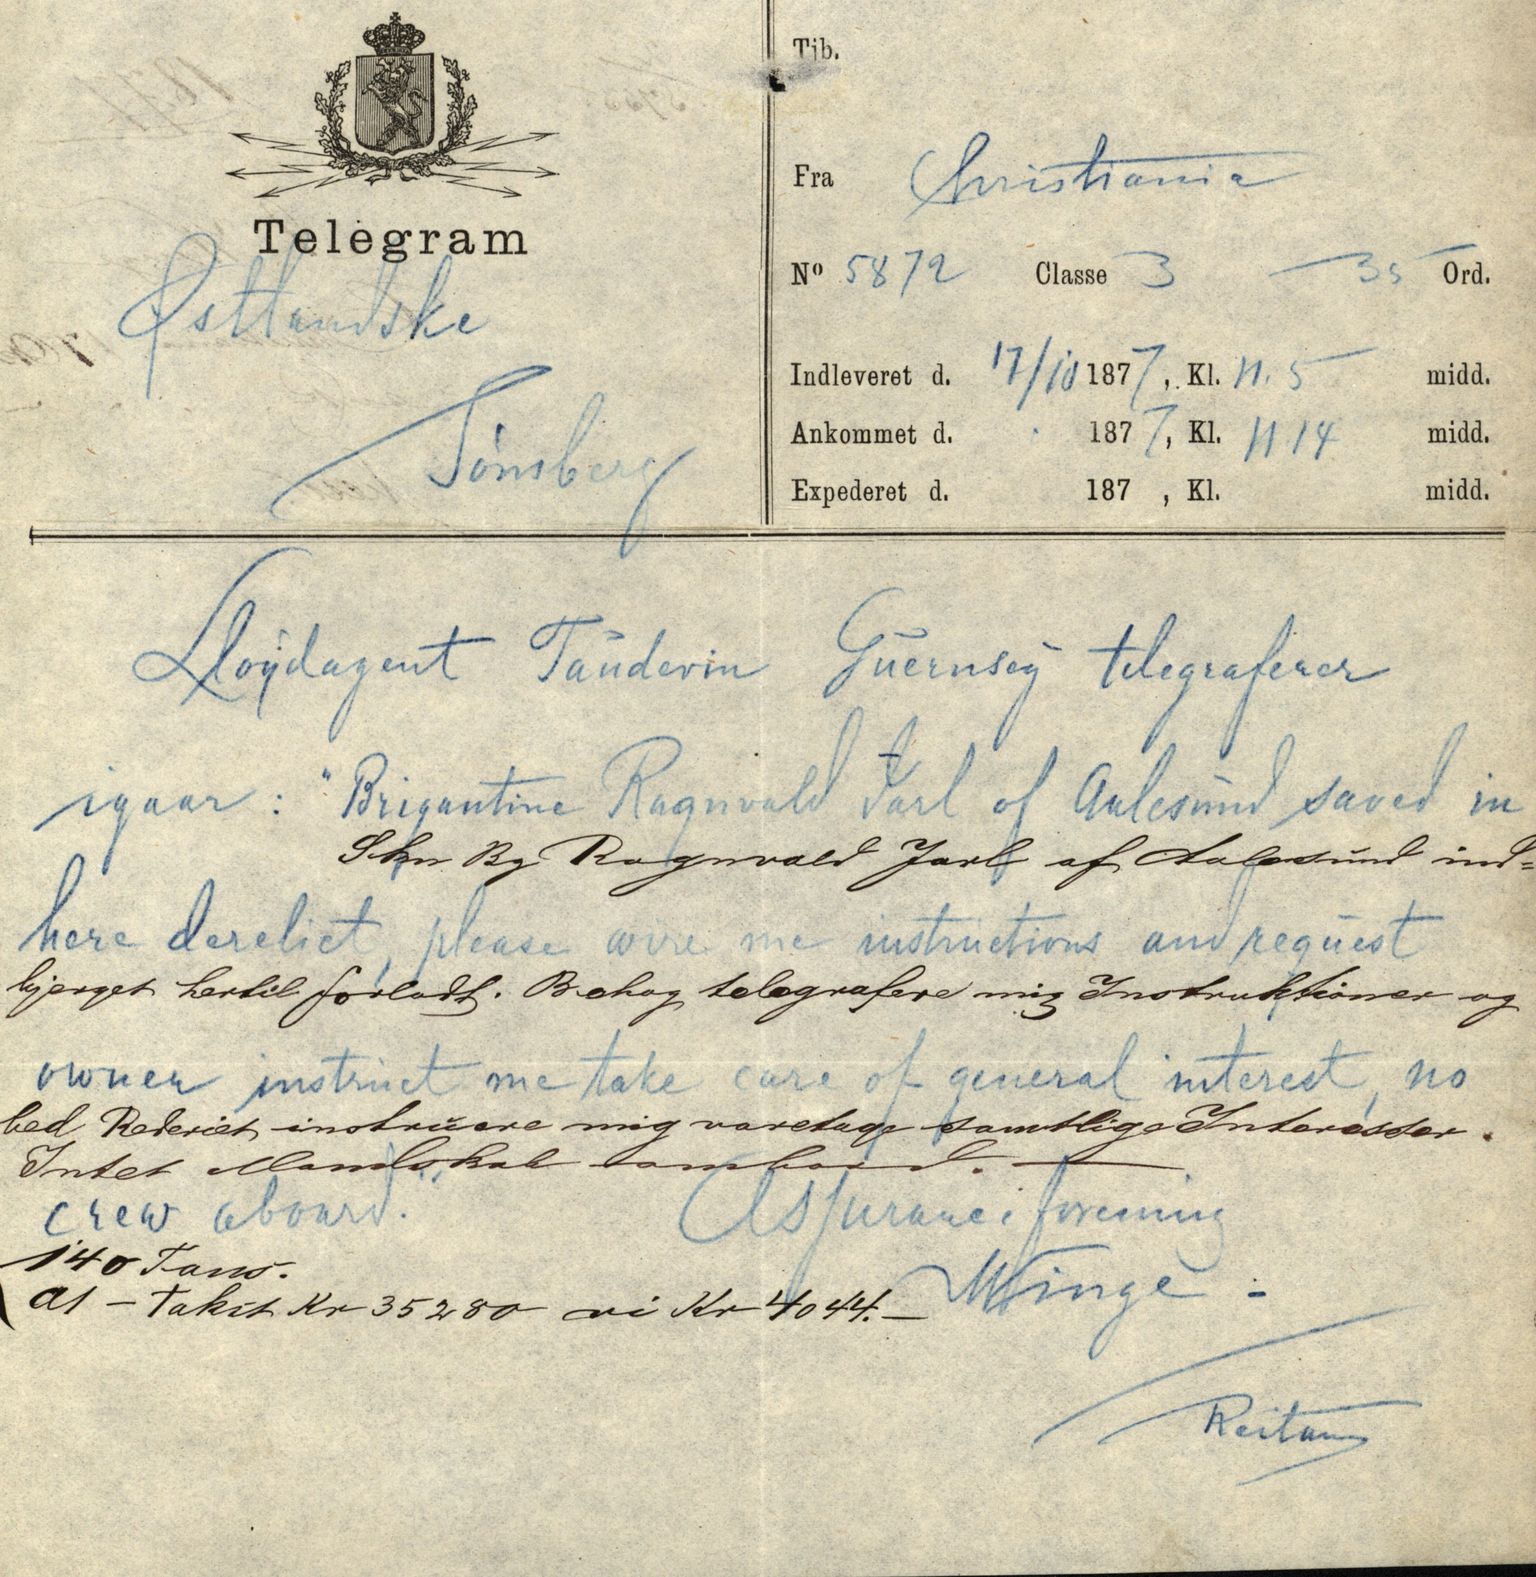 Telegram
Østlandske
Tönsberg
Tjb.
Fra Christiania
No 5872 Classe 3 35 Ord.
Indleveret d. 17/10 1877, Kl. 11.5 midd.
Ankommet d. 1877, Kl. 11 14 midd.
Expederet d. 187 , Kl. midd.
Lloydagent Taudevin Guernsey telegraferer
igaar: "Brigantine Ragnvald Jarl of Aalesund saved in
Skn Bg Ragnvald Jarl af Aalesund ind=
here derelict, please wire me instructions and request
bjerget hertil forladt. Behag telegrafere mig Instruktioner og
owner instruct me take care of general interest, no
bed Rederiet instruere mig varetage samtlige Interesser.
Intet Mandskab ombord.
crew aboard."
Assuranceforening
140 Tons.
A1 – Takst Kr 35280 vi Kr 4044.–
Winge –
Reitan